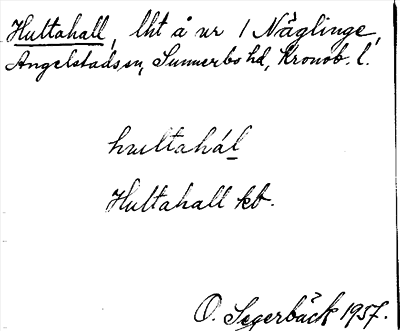 Hultahall, lht å nr 1 Näglinge,
Angelstads sn, Sunnerbo hd, Kronob. l.
hultahál
Hultahall kt.
O. Segerbäck 1957.